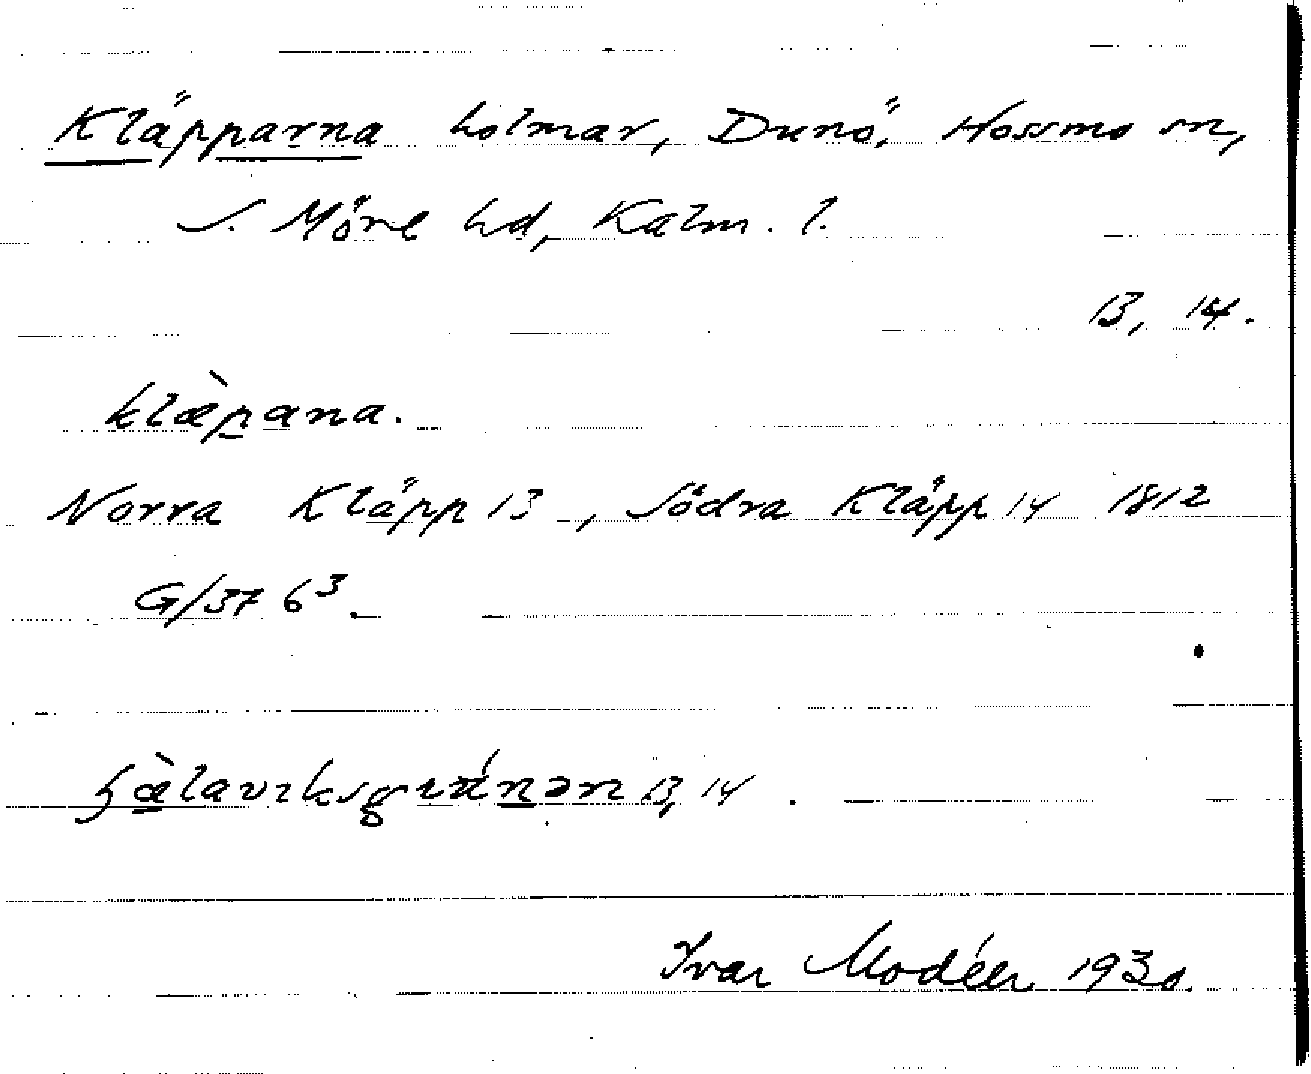 Kläpparna holmar, Dunö, Hossmo sn,
S. Möre hd, Kalm. l.
13, 14.
klæ̀pana.
Norra Kläpp 13, Södra Kläpp 14 1812
G/37 6³.
13, 14.
Ivar Modéer 1930.